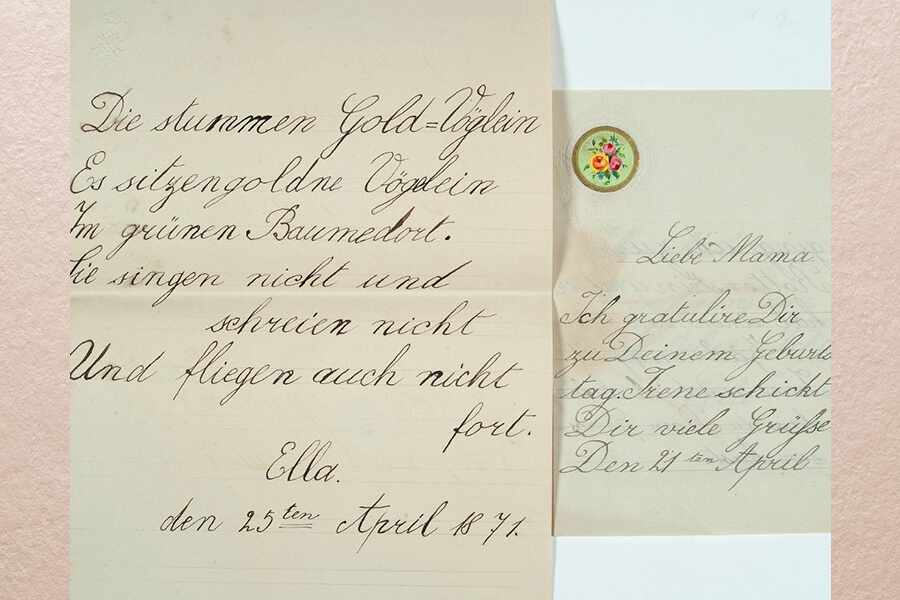 Die stummen Gold=Vöglein
Es sitzen goldne Vögelein
Im grünen Baumedort.
Sie singen nicht und
schreien nicht
Und fliegen auch nicht
fort.
Ella.
den 25ten April 1871.
Liebe Mama
Ich gratulire Dir
zu Deinem Geburts
tag. Irene schickt
Dir viele Grüsse
Den 21ten April